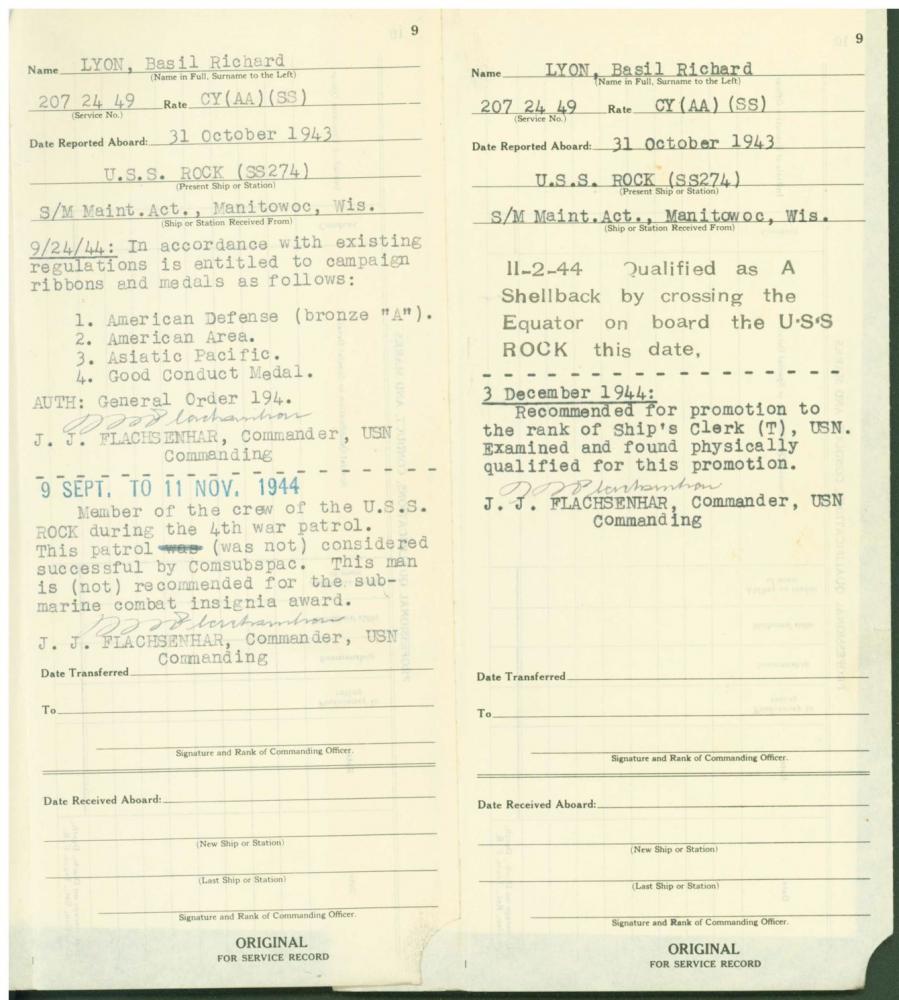 9
Name LYON, Basil Richard
(Name in Full, Surname to the Left)
207 24 49 Rate CY(AA)(SS)
(Service No.)
Date Reported Aboard: 31 October 1943
U.S.S. ROCK (SS274)
(Present Ship or Station)
S/M Maint.Act., Manitowoc, Wis.
(Ship or Station Received From)
9/24/44: In accordance with existing
regulations is entitled to campaign
ribbons and medals as follows:
1. American Defense (bronze "A").
2. American Area.
3. Asiatic Pacific.
4. Good Conduct Medal.
AUTH: General Order 194.
J. J. FLACHSENHAR, Commander, USN
Commanding
9 SEPT. TO 11 NOV. 1944
Member of the crew of the U.S.S.
ROCK during the 4th war patrol.
This patrol was (was not) considered
successful by Comsubspac. This man
is (not) recommended for the sub-
marine combat insignia award.
J. J. FLACHSENHAR, Commander, USN
Commanding
Date Transferred
To
Signature and Rank of Commanding Officer.
Date Received Aboard:
(New Ship or Station)
(Last Ship or Station)
Signature and Rank of Commanding Officer.
ORIGINAL
FOR SERVICE RECORD
9
Name LYON, Basil Richard
(Name in Full, Surname to the Left)
207 24 49 Rate CY(AA)(SS)
(Service No.)
Date Reported Aboard: 31 October 1943
U.S.S. ROCK (SS274)
(Present Ship or Station)
S/M Maint.Act., Manitowoc, Wis.
(Ship or Station Received From)
11-2-44 Qualified as A
Shellback by crossing the
Equator on board the U.S.S
ROCK this date,
3 December 1944:
Recommended for promotion to
the rank of Ship's Clerk (T), USN.
Examined and found physically
qualified for this promotion.
J. J. FLACHSENHAR, Commander, USN
Commanding
Date Transferred
To
Signature and Rank of Commanding Officer.
Date Received Aboard:
(New Ship or Station)
(Last Ship or Station)
Signature and Rank of Commanding Officer.
ORIGINAL
FOR SERVICE RECORD